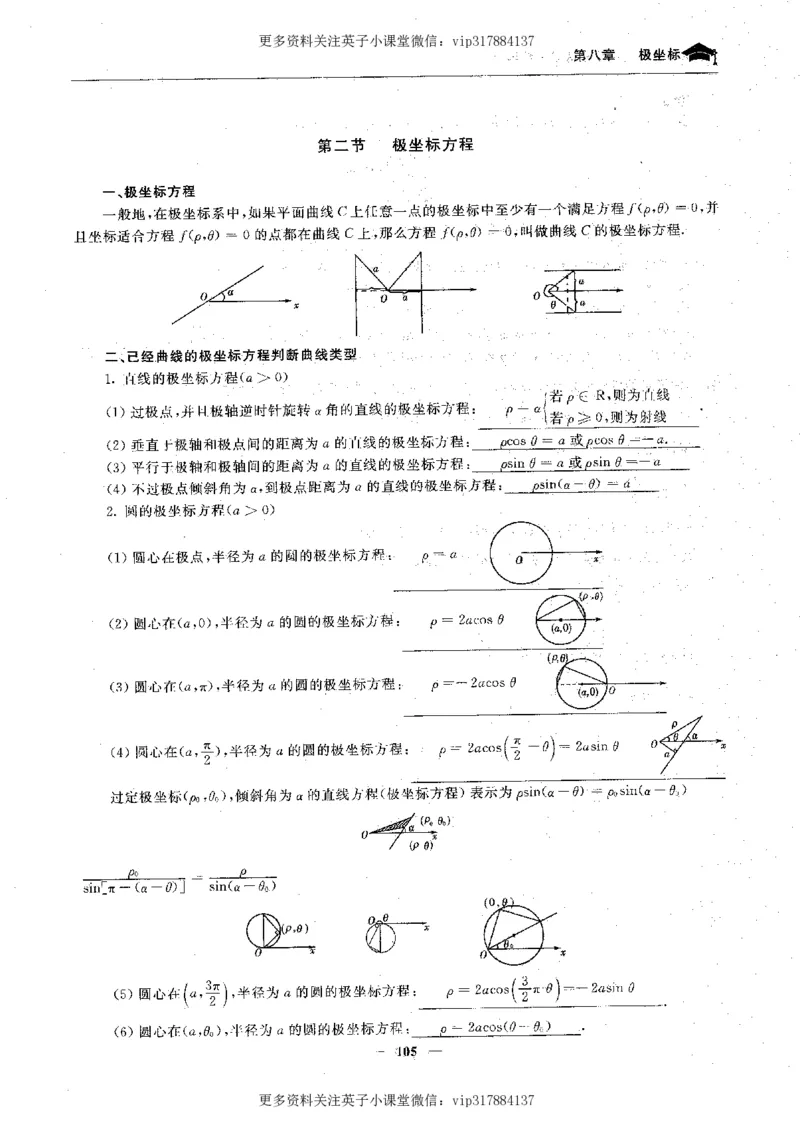 更多资料关注英子小课堂微信：vip317884137
第八章 极坐标
第二节 极坐标方程
一、极坐标方程
一般地,在极坐标系中,如果平面曲线 C 上任意一点的极坐标中至少有一个满足方程 f(ρ,θ) = 0,并
且坐标适合方程 f(ρ,θ) = 0 的点都在曲线 C 上,那么方程 f(ρ,θ) = 0,叫做曲线 C 的极坐标方程.
O α x
a O a
O θ a a
二、已经曲线的极坐标方程判断曲线类型
1. 直线的极坐标方程(a > 0)
(1) 过极点,并且极轴逆时针旋转 α 角的直线的极坐标方程: ρ = α{若 ρ ∈ R,则为直线
若 ρ ⩾ 0,则为射线 .
(2) 垂直于极轴和极点间的距离为 a 的直线的极坐标方程: ρcos θ = a 或 ρcos θ = −a.
(3) 平行于极轴和极轴间的距离为 a 的直线的极坐标方程: ρsin θ = a 或 ρsin θ = −a
(4) 不过极点倾斜角为 α,到极点距离为 a 的直线的极坐标方程: ρsin(α − θ) = a
2. 圆的极坐标方程(a > 0)
(1) 圆心在极点,半径为 a 的圆的极坐标方程: ρ = a O x
(ρ,θ)
(2) 圆心在(a,0),半径为 a 的圆的极坐标方程: ρ = 2acos θ (a,0)
(ρ,θ)
(3) 圆心在(a,π),半径为 a 的圆的极坐标方程: ρ = −2acos θ (a,0) O
(4) 圆心在(a, π/2),半径为 a 的圆的极坐标方程: ρ = 2acos(π/2 − θ) = 2asin θ O ρ θ α a x
过定极坐标(ρ₀,θ₀),倾斜角为 α 的直线方程(极坐标方程) 表示为 ρsin(α − θ) = ρ₀sin(α − θ₀)
O α (ρ₀ θ₀) x
(ρ θ)
ρ₀/sin[π − (α − θ)] = ρ/sin(α − θ₀)
(ρ,θ) O x
O θ x
(0,θ) O θ₀ x
(5) 圆心在(a, 3π/2),半径为 a 的圆的极坐标方程: ρ = 2acos(3/2π-θ) = −2asin θ .
(6) 圆心在(a,θ₀),半径为 a 的圆的极坐标方程: ρ = 2acos(θ − θ₀) .
— 105 —
更多资料关注英子小课堂微信：vip317884137